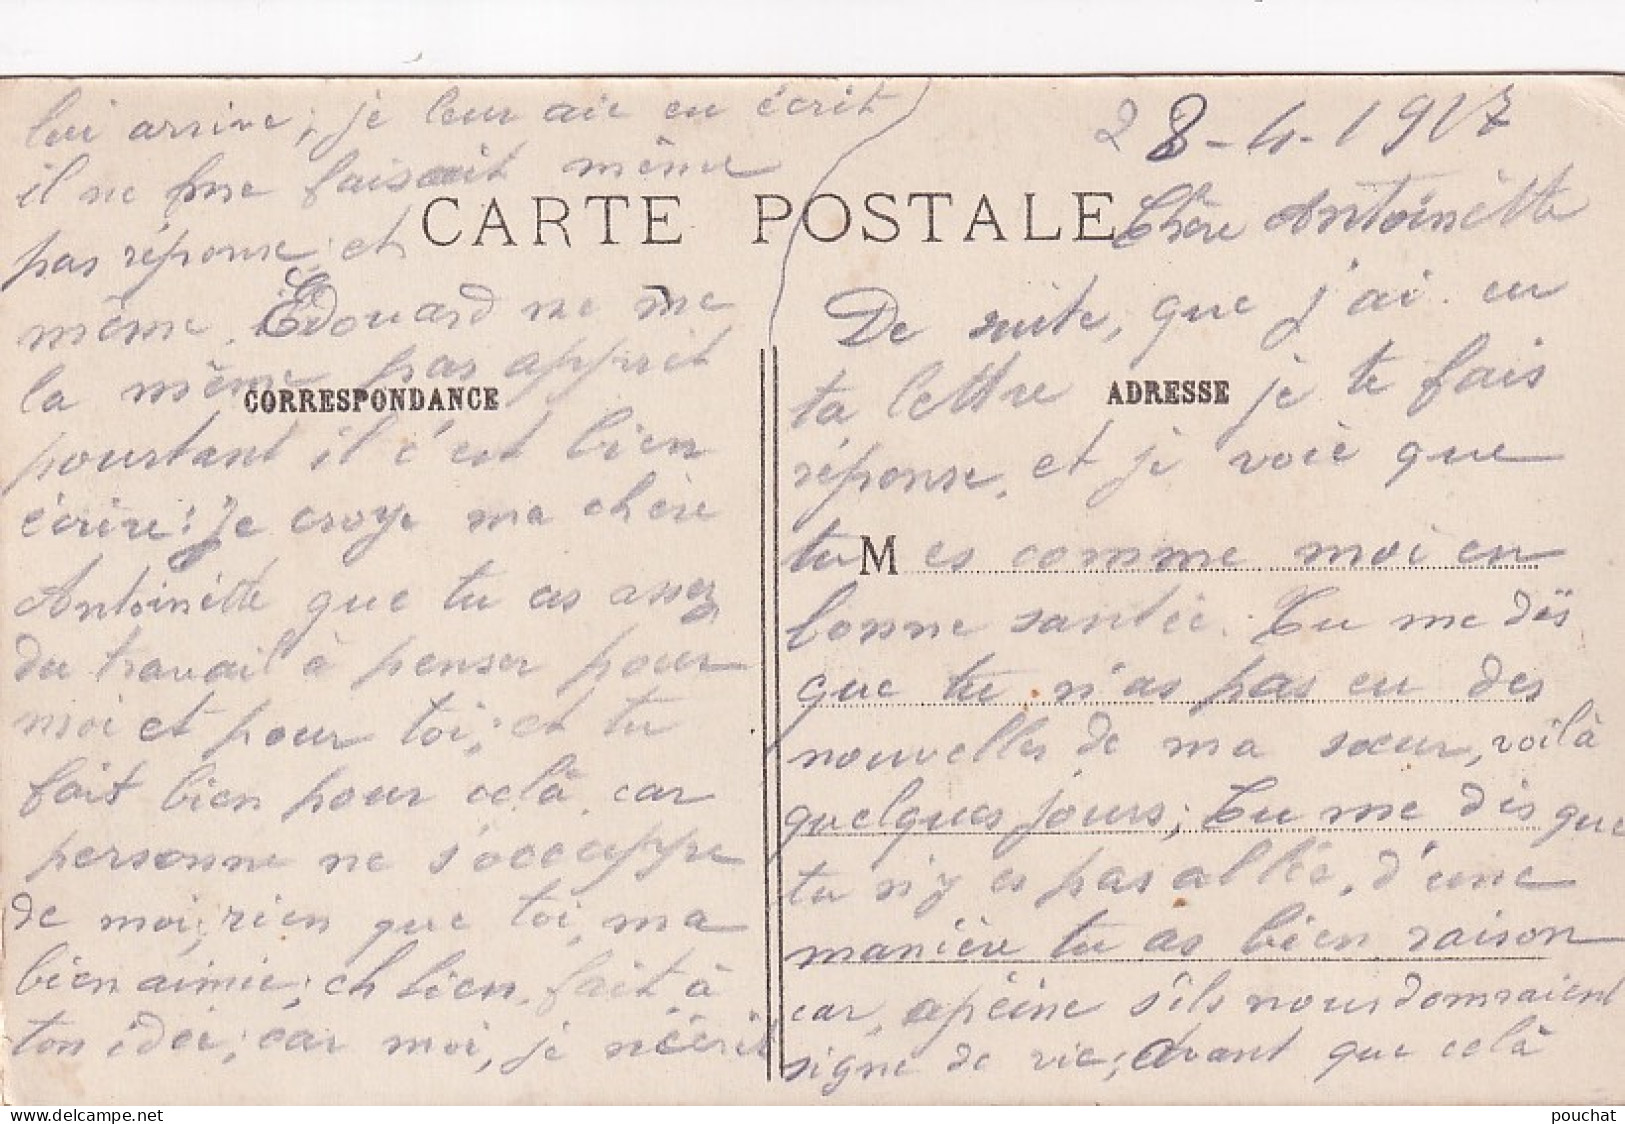 28-4-1917
Chère Antoinètte
De suite, que j'ai eu
ta lettre je te fais
réponse, et je voie que
tu es comme moi en
bonne santée. Tu me dïs
que tu n'as pas eu des
nouvelles de ma sœur, voilà
quelques jours; Tu me dis que
tu n'y es pas allée, d'une
manière tu as bien raison
car, apeine s'ils nous domraient
signe de vie; avant que celà
lui arrive; je leur aie eu écrit
il ne me faisait même
pas réponse, et
même. Edouard ne me
la même pas apprit
pourtant il c'est bien
écrire! Je croye ma chère
Antoinètte que tu as assez
du travail à penser pour
moi et pour toi; et tu
fait bien pour celà, car
personne ne s'occcuppe
de moi, rien que toi, ma
bien aimie; eh bien, fait à
ton idèi; car moi, je n'écrit
CARTE POSTALE
CORRESPONDANCE
ADRESSE
M
delcampe.net
pouchat